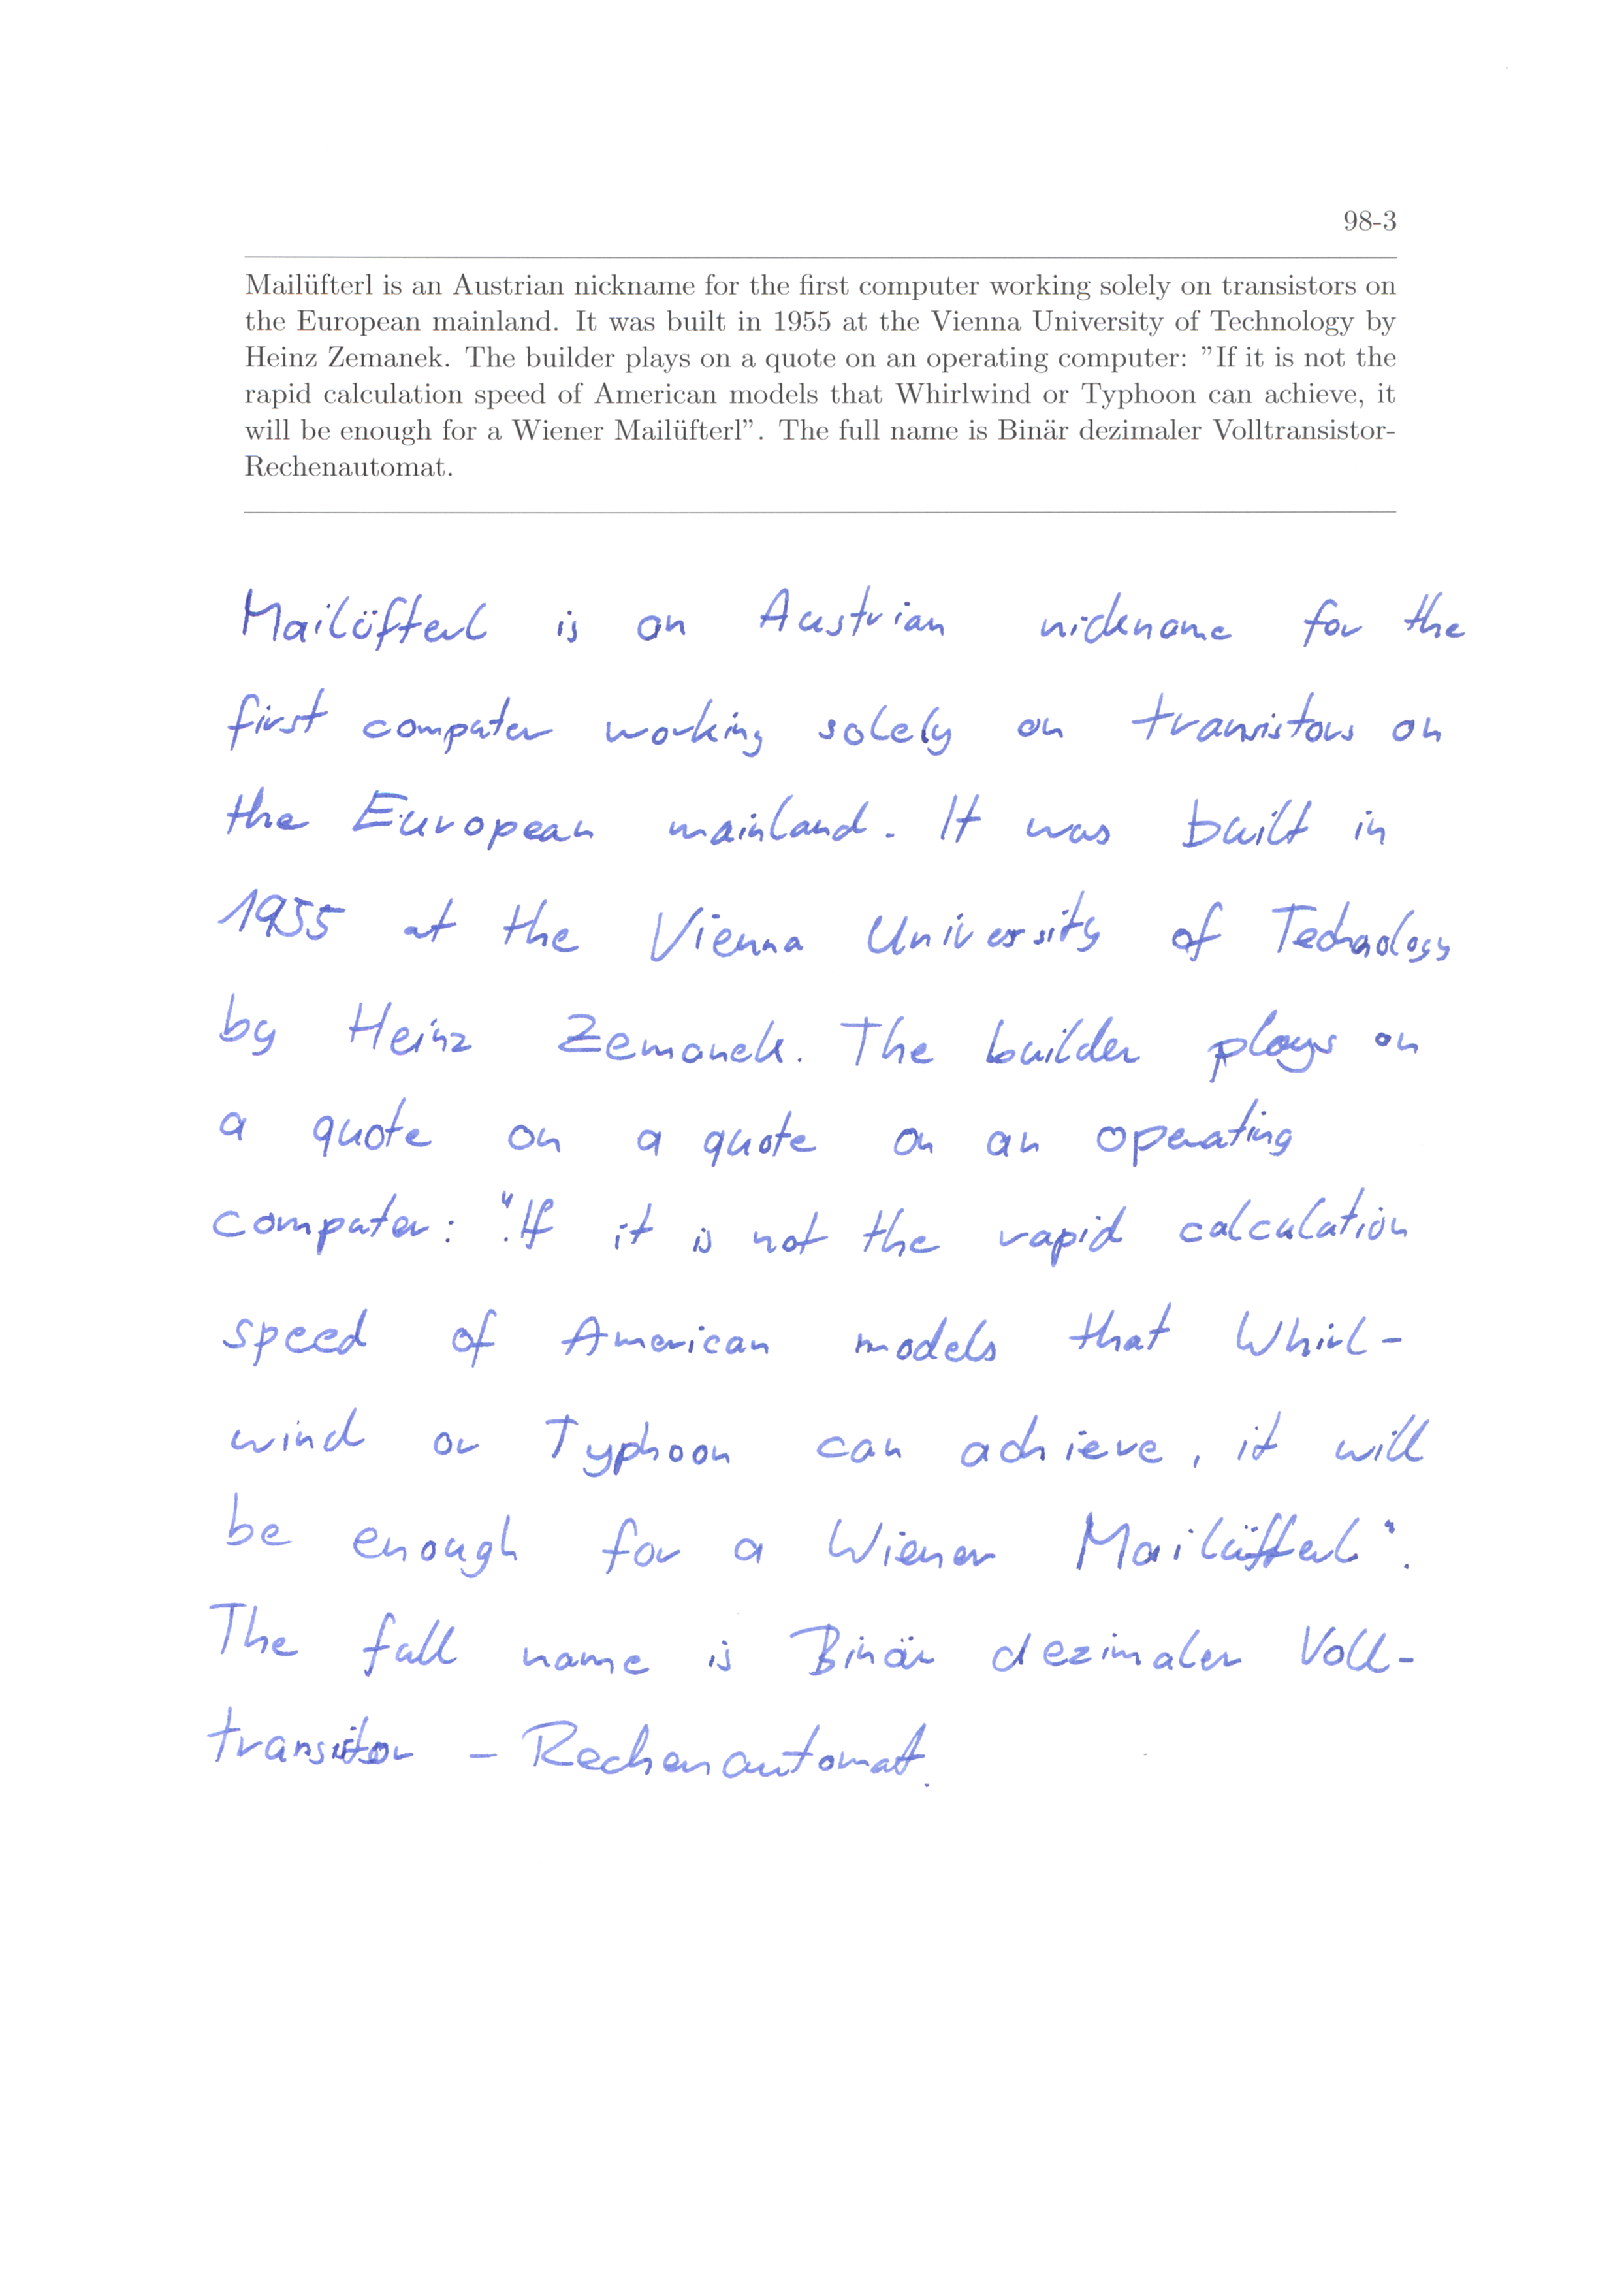 98-3
Mailüfterl is an Austrian nickname for the first computer working solely on transistors on
the European mainland. It was built in 1955 at the Vienna University of Technology by
Heinz Zemanek. The builder plays on a quote on an operating computer: ”If it is not the
rapid calculation speed of American models that Whirlwind or Typhoon can achieve, it
will be enough for a Wiener Mailüfterl”. The full name is Binär dezimaler Volltransistor-
Rechenautomat.
Mailüfterl is an Austrian nickname for the
first computer working solely on transistors on
the European mainland. It was built in
1955 at the Vienna University of Technology
by Heinz Zemanek. The builder plays on
a quote on a quote on an operating
computer: "If it is not the rapid calculation
speed of American models that Whirl-
wind or Typhoon can achieve, it will
be enough for a Wiener Mailüfterl".
The full name is Binär dezimaler Voll-
transistor - Rechenautomat.